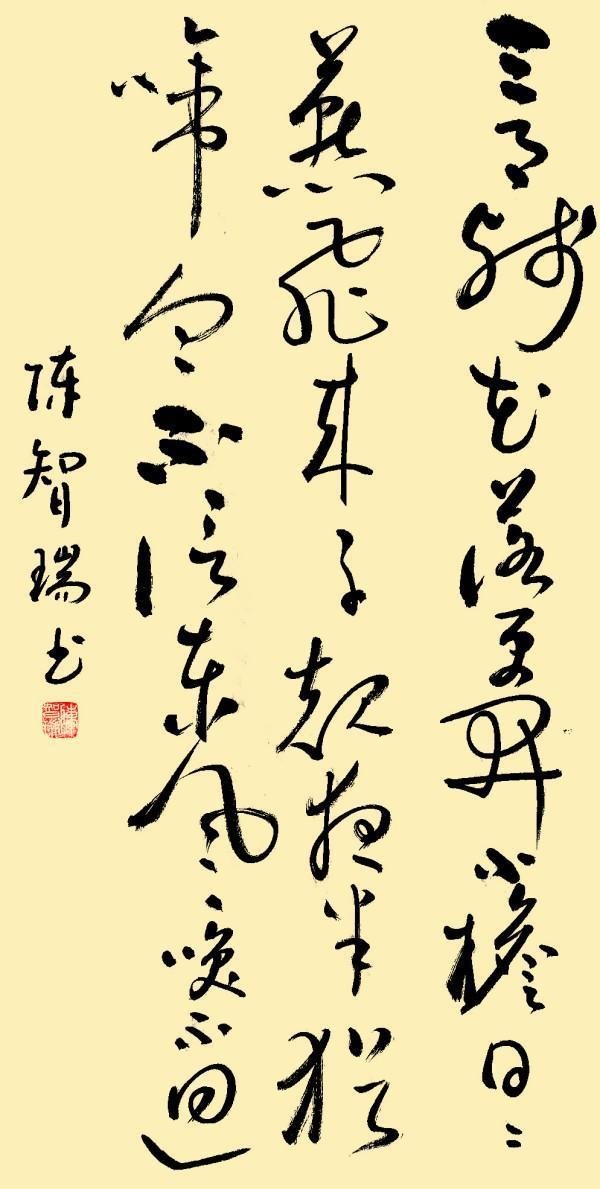 三月残花落更开小檐日日
燕飞来子规夜半犹
啼血不信东风唤不回
陈智瑞书